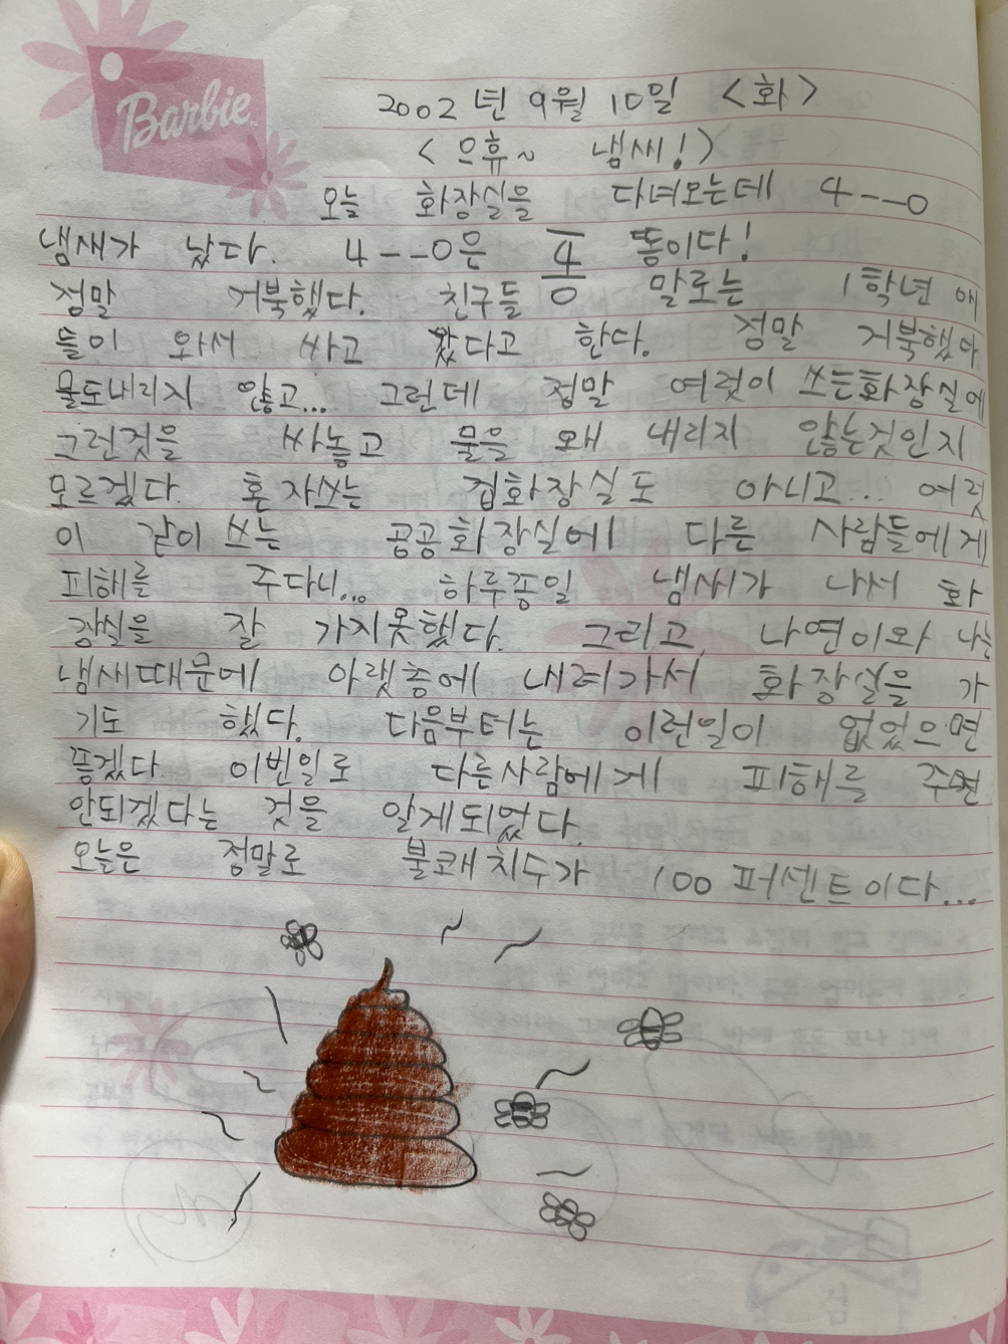 Barbie
2002년 9월 10일 <화>
<으휴~ 냄씨!>
오늘 화장실을 다녀오는데 4--0
냄새가 났다. 4--0은 똥이다!
정말 거북했다. 친구들 말로는 1학년 애
들이 와서 싸고 갔다고 한다. 정말 거북했다
물도내리지 않고... 그런데 정말 여럿이 쓰는화장실에
그런것을 싸놓고 물을 왜 내리지 않는것인지
모르겠다. 혼자쓰는 집화장실도 아니고... 여럿
이 같이 쓰는 공공화장실에 다른 사람들에게
피해를 주다니... 하루종일 냄씨가 나서 화
장실을 잘 가지못했다. 그리고, 나연이와 나는
냄새때문에 아랫층에 내려가서 화장실을 가
기도 했다. 다음부터는 이런일이 없었으면
좋겠다. 이번일로 다른사람에게 피해를 주면
안되겠다는 것을 알게되었다.
오늘은 정말로 불쾌치수가 100퍼센트이다...